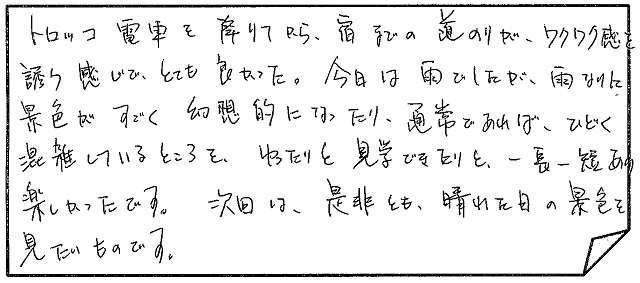 トロッコ電車を降りてから、宿までの道のりが、ワクワク感を
誘う感じで、とても良かった。今日は雨でしたが、雨なりに
景色がすごく幻想的になったり、通常であれば、ひどく
混雑しているところを、ゆったりと見学できたりと、一長一短あり
楽しかったです。次回は、是非とも、晴れた日の景色を
見たいものです。